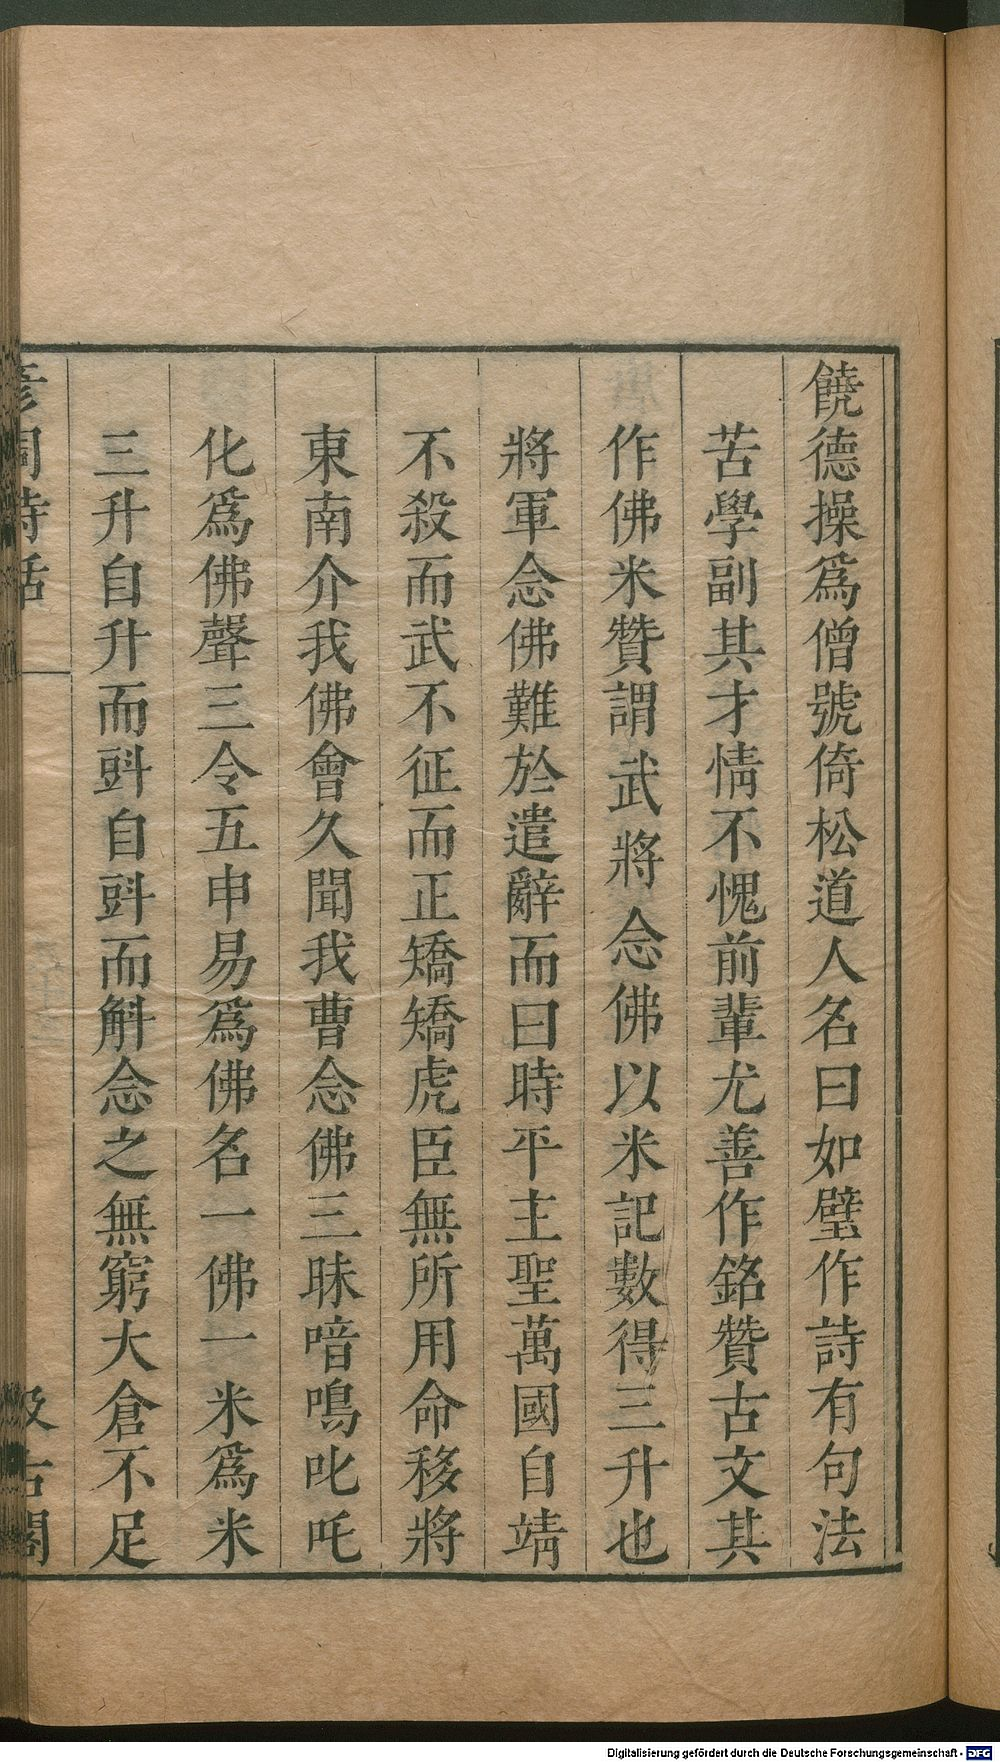 饒德操爲僧號倚松道人名曰如璧作詩有句法
苦學副其才情不愧前輩尤善作銘贊古文其
作佛米贊謂武將念佛以米記數得三升也
將軍念佛難於遣辭而曰時平主聖萬國自靖
不殺而武不征而正矯矯虎臣無所用命移將
東南介我佛會久聞我曹念佛三昧喑鳴叱吒
化爲佛聲三令五申易爲佛名一佛一米爲米
三升自升而㪷自㪷而斛念之無窮大倉不足
彥周詩話
汲古閣
Digitalisierung gefördert durch die Deutsche Forschungsgemeinschaft - DFG